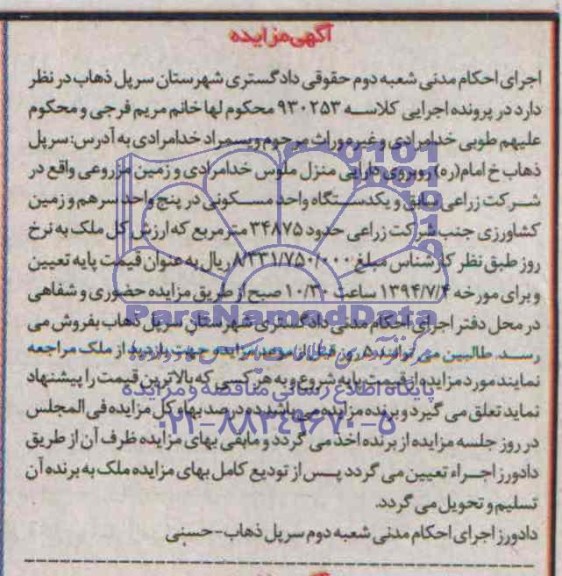 آگهی مزایده
اجرای احکام مدنی شعبه دوم حقوقی دادگستری شهرستان سرپل ذهاب در نظر
دارد در پرونده اجرایی کلاسه ۹۳۰۲۵۳ محکوم لها خانم مریم فرجی و محکوم
علیهم طوبی خدامرادی و غیره وراث مرحوم ویسمراد خدامرادی به آدرس: سرپل
ذهاب خ امام(ره) روبروی دارایی منزل ملوس خدامرادی و زمین مزروعی واقع در
شرکت زراعی سابق و یکدستگاه واحد مسکونی در پنج واحد سرهم و زمین
کشاورزی جنب شرکت زراعی حدود ۳۴۸۷۵ متر مربع که ارزش کل ملک به نرخ
روز طبق نظر کارشناس مبلغ ۸/۳۳۱/۷۵۰/۰۰۰ ریال به عنوان قیمت پایه تعیین
و برای مورخه ۱۳۹۴/۷/۴ ساعت ۱۰/۳۰ صبح از طریق مزایده حضوری و شفاهی
در محل دفتر اجرای احکام مدنی دادگستری شهرستان سرپل ذهاب بفروش می
رسد. طالبین می توانند ۵ روز قبل از موعد مزایده جهت بازدید از ملک مراجعه
نمایند مورد مزایده از قیمت پایه شروع و به هر کسی که بالاترین قیمت را پیشنهاد
نماید تعلق می گیرد و برنده مزایده می باشد ده درصد بهاء کل مزایده فی المجلس
در روز جلسه مزایده از برنده اخذ می گردد و مابقی بهای مزایده ظرف آن از طریق
دادورز اجراء تعیین می گردد پس از تودیع کامل بهای مزایده ملک به برنده آن
تسلیم و تحویل می گردد.
دادورز اجرای احکام مدنی شعبه دوم سرپل ذهاب - حسنی
ParsNamadData
پایگاه اطلاع رسانی مناقصه و مزایده
۰۲۱-۸۸۳۴۹۶۷۰-۵